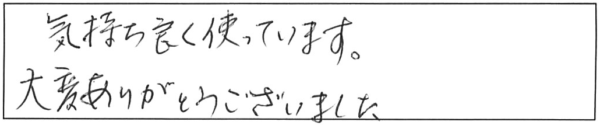 気持ち良く使っています。
大変ありがとうございました